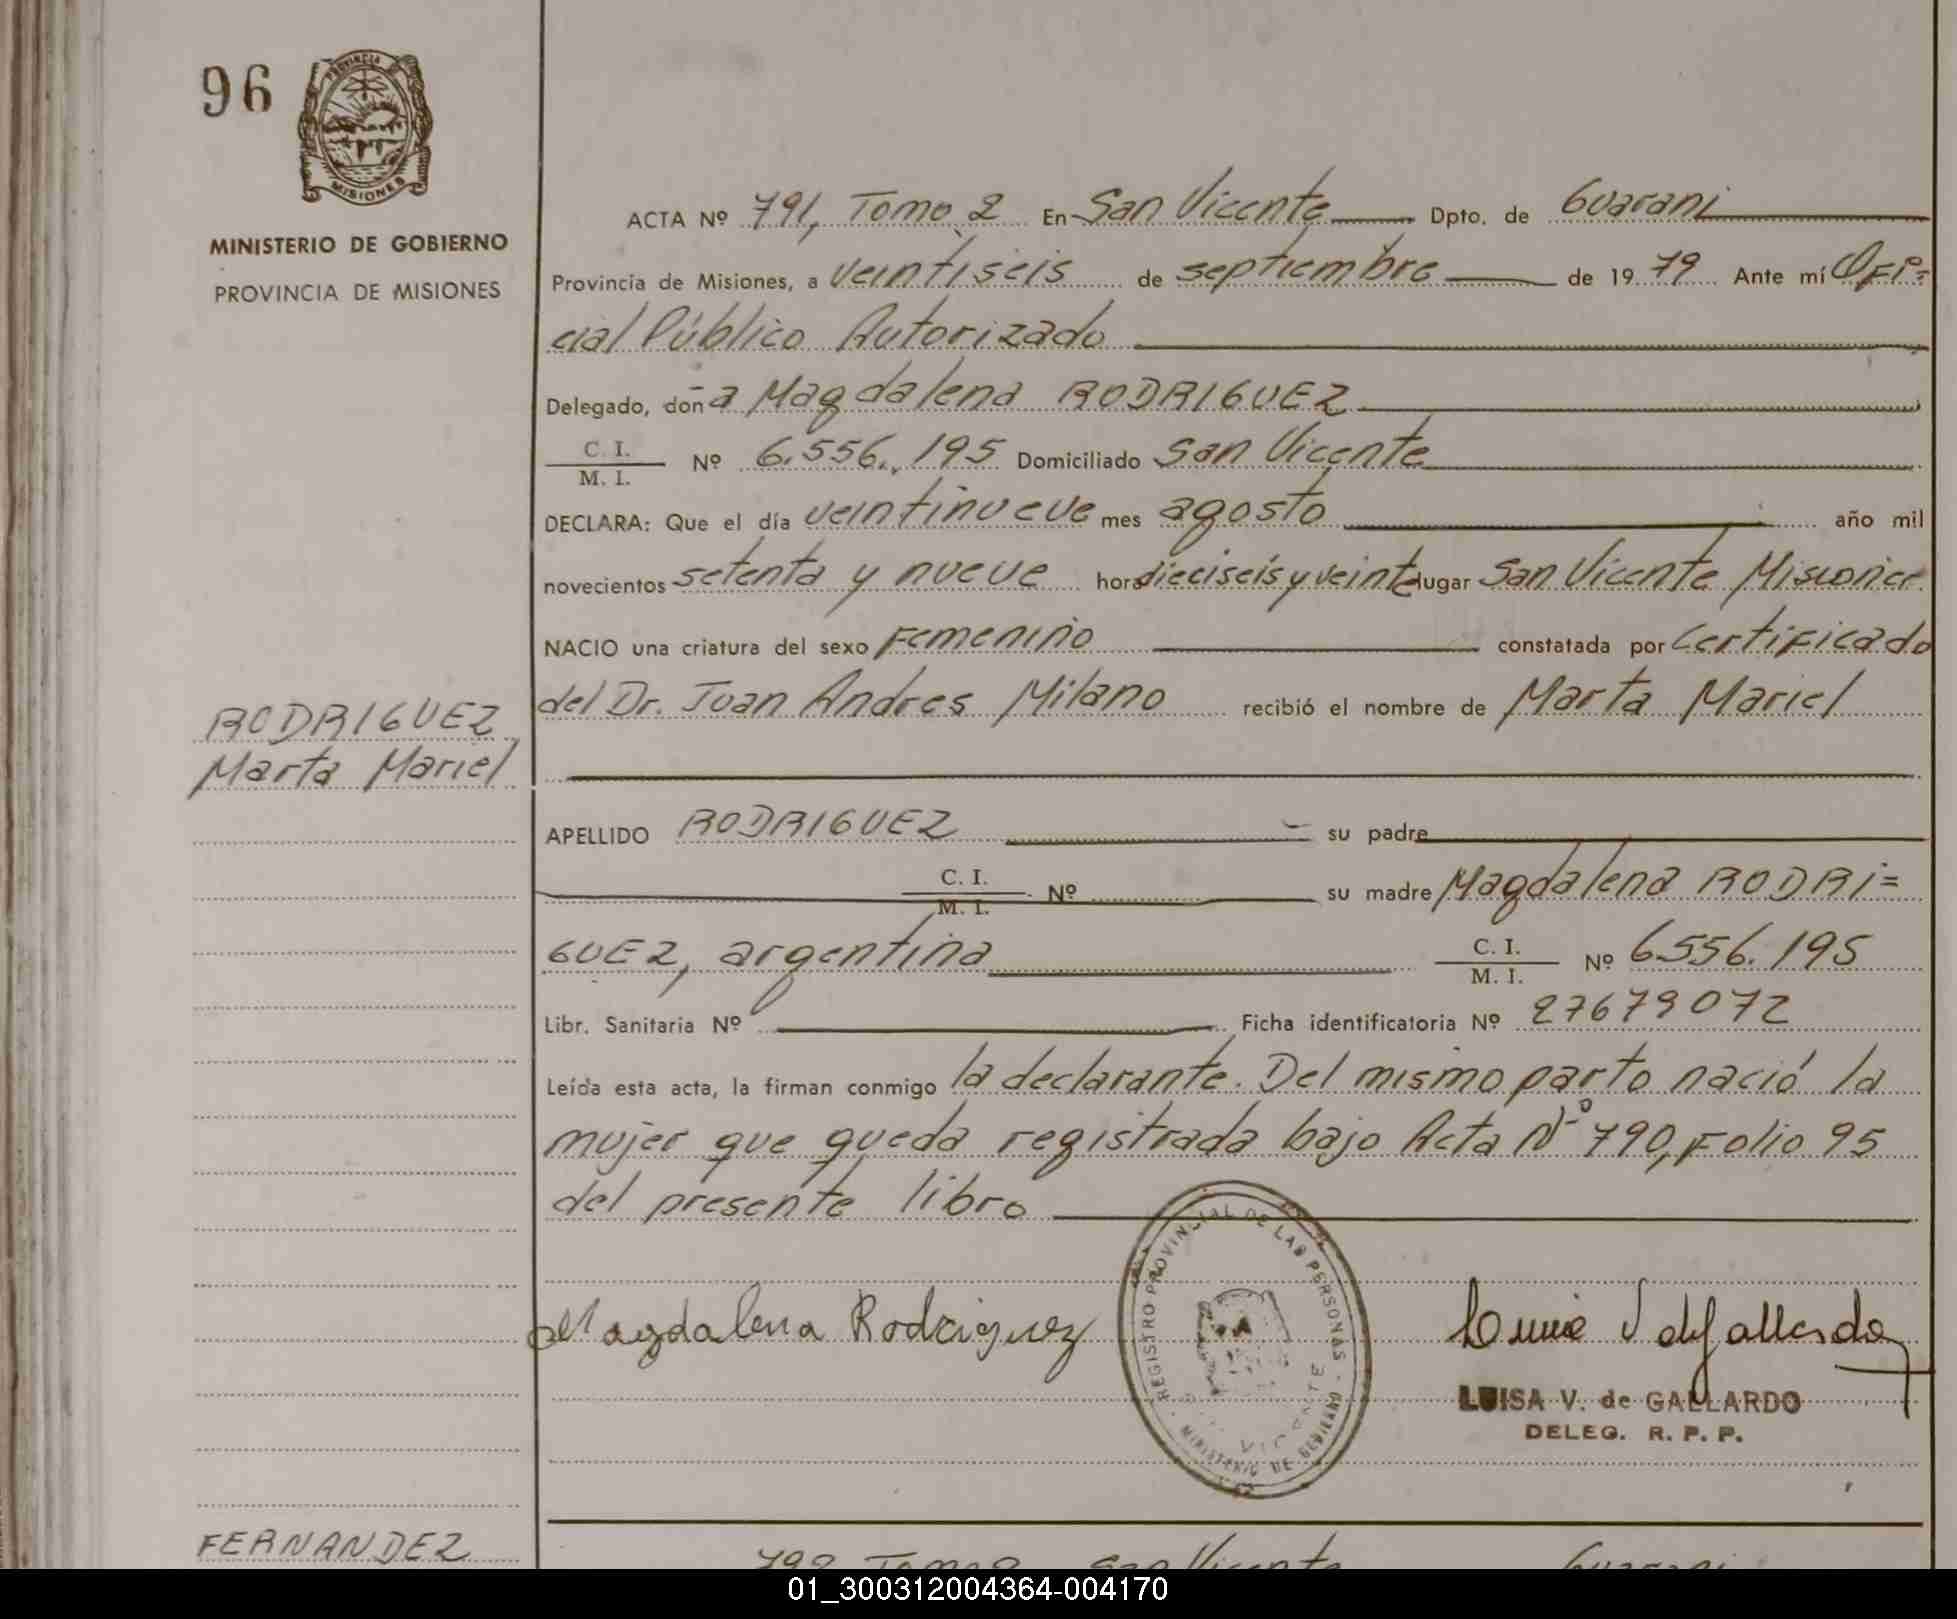 96
PROVINCIA DE
MISIONES
MINISTERIO DE GOBIERNO
PROVINCIA DE MISIONES
ACTA Nº 791, Tomo 2 En San Vicente Dpto. de Guarani
Provincia de Misiones, a veintiseis de septiembre de 1979 Ante mí Ofi=
cial Público Autorizado
Delegado, doña Magdalena RODRIGUEZ
C. I.
M. I. Nº 6.556.195 Domiciliado San Vicente
DECLARA: Que el día veintinueve mes agosto año mil
novecientos setenta y nueve hora dieciseis y veinte lugar San Vicente Misiones
NACIO una criatura del sexo Femenino constatada por Certificado
del Dr. Juan Andres Milano recibió el nombre de Marta Mariel
RODRIGUEZ
Marta Mariel
APELLIDO RODRIGUEZ su padre
C. I.
M. I. Nº su madre Magdalena RODRI=
GUEZ, argentina C. I.
M. I. Nº 6556.195
Libr. Sanitaria Nº Ficha identificatoria Nº 27679072
Leída esta acta, la firman conmigo la declarante. Del mismo parto nació la
mujer que queda registrada bajo Acta Nº 790, Folio 95
del presente libro
REGISTRO PROVINCIAL DE LAS PERSONAS
MINISTERIO DE GOBIERNO
VICENTE
Magdalena Rodriguez
LUISA V. de GALLARDO
DELEG. R. P. P.
FERNANDEZ
792 Tomo 2 San Vicente Guarani
01_300312004364-004170